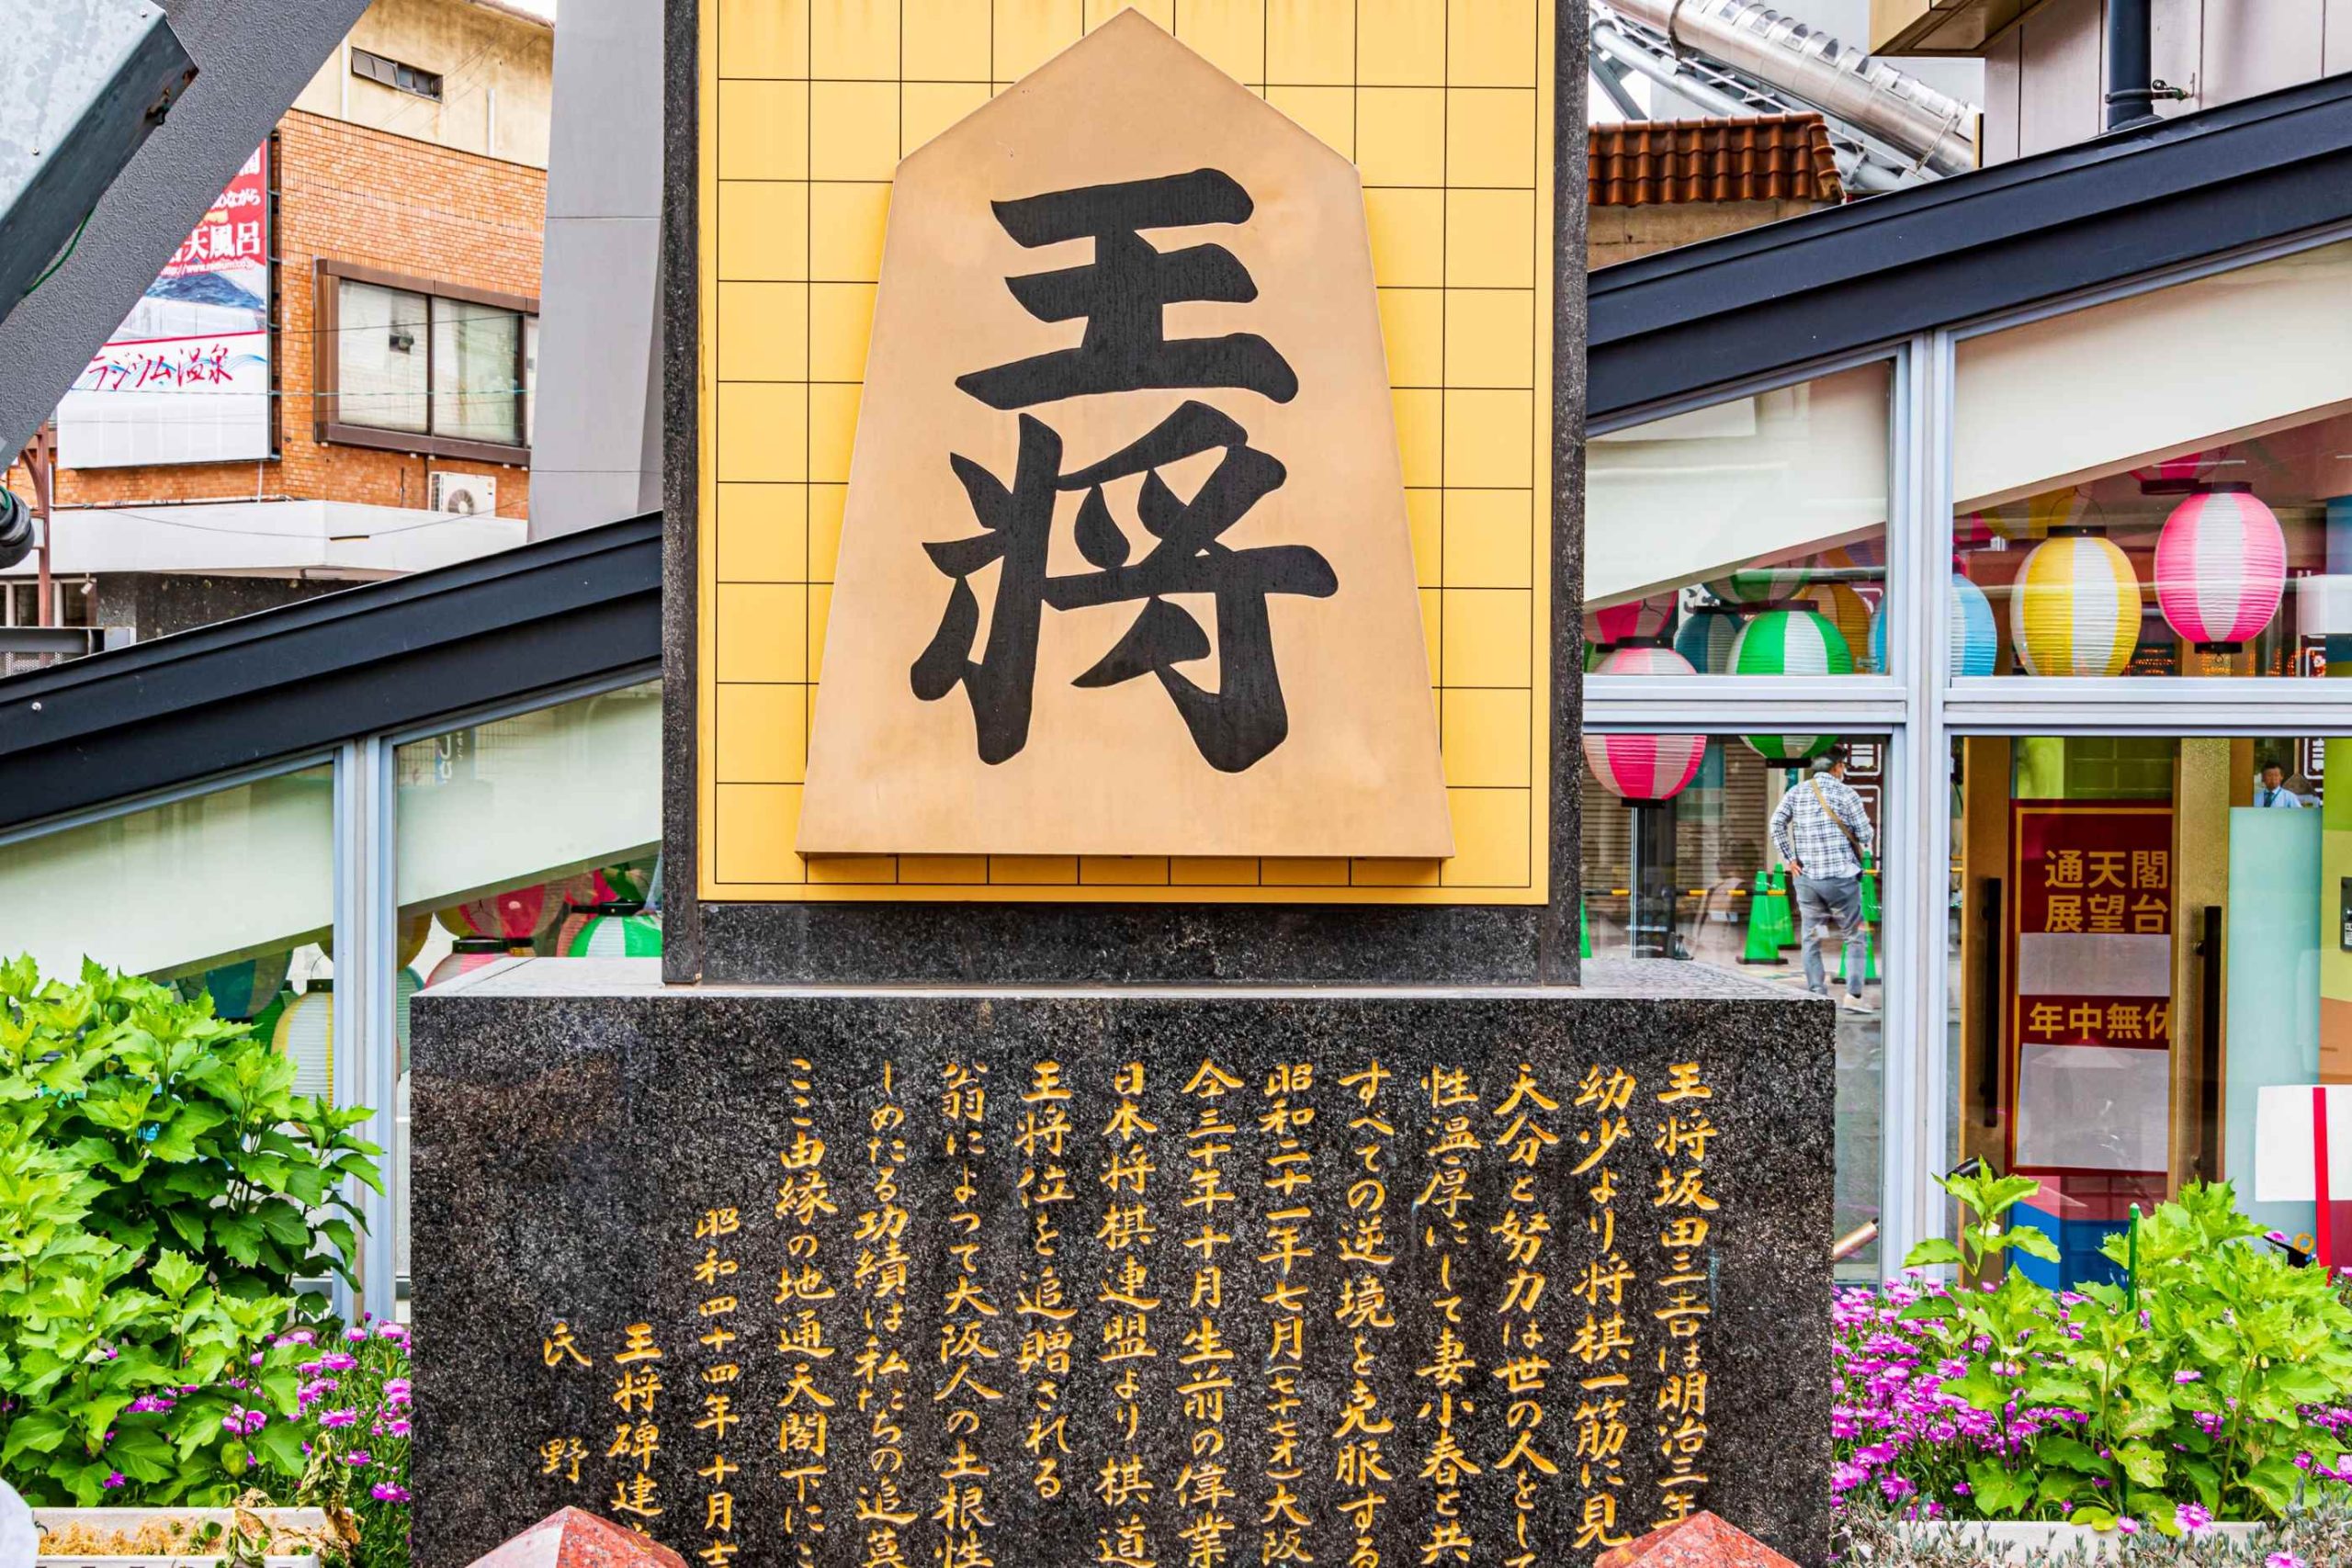 王将
王将坂田三吉は明治三年
幼少より将棋一筋に見
天分と努力は世の人をして
性温厚にして妻小春と共
すべての逆境を克服する
昭和二十一年七月(七十七才)大阪
仝三十年十月生前の偉業
日本将棋連盟より棋道
王将位を追贈される
翁によって大阪人の土根性
しめたる功績は私たちの追慕
ここ由縁の地通天閣下にこ
昭和四十四年十月
王将碑建
氏野
天風呂
ラジウム温泉
通天閣
展望台
年中無休